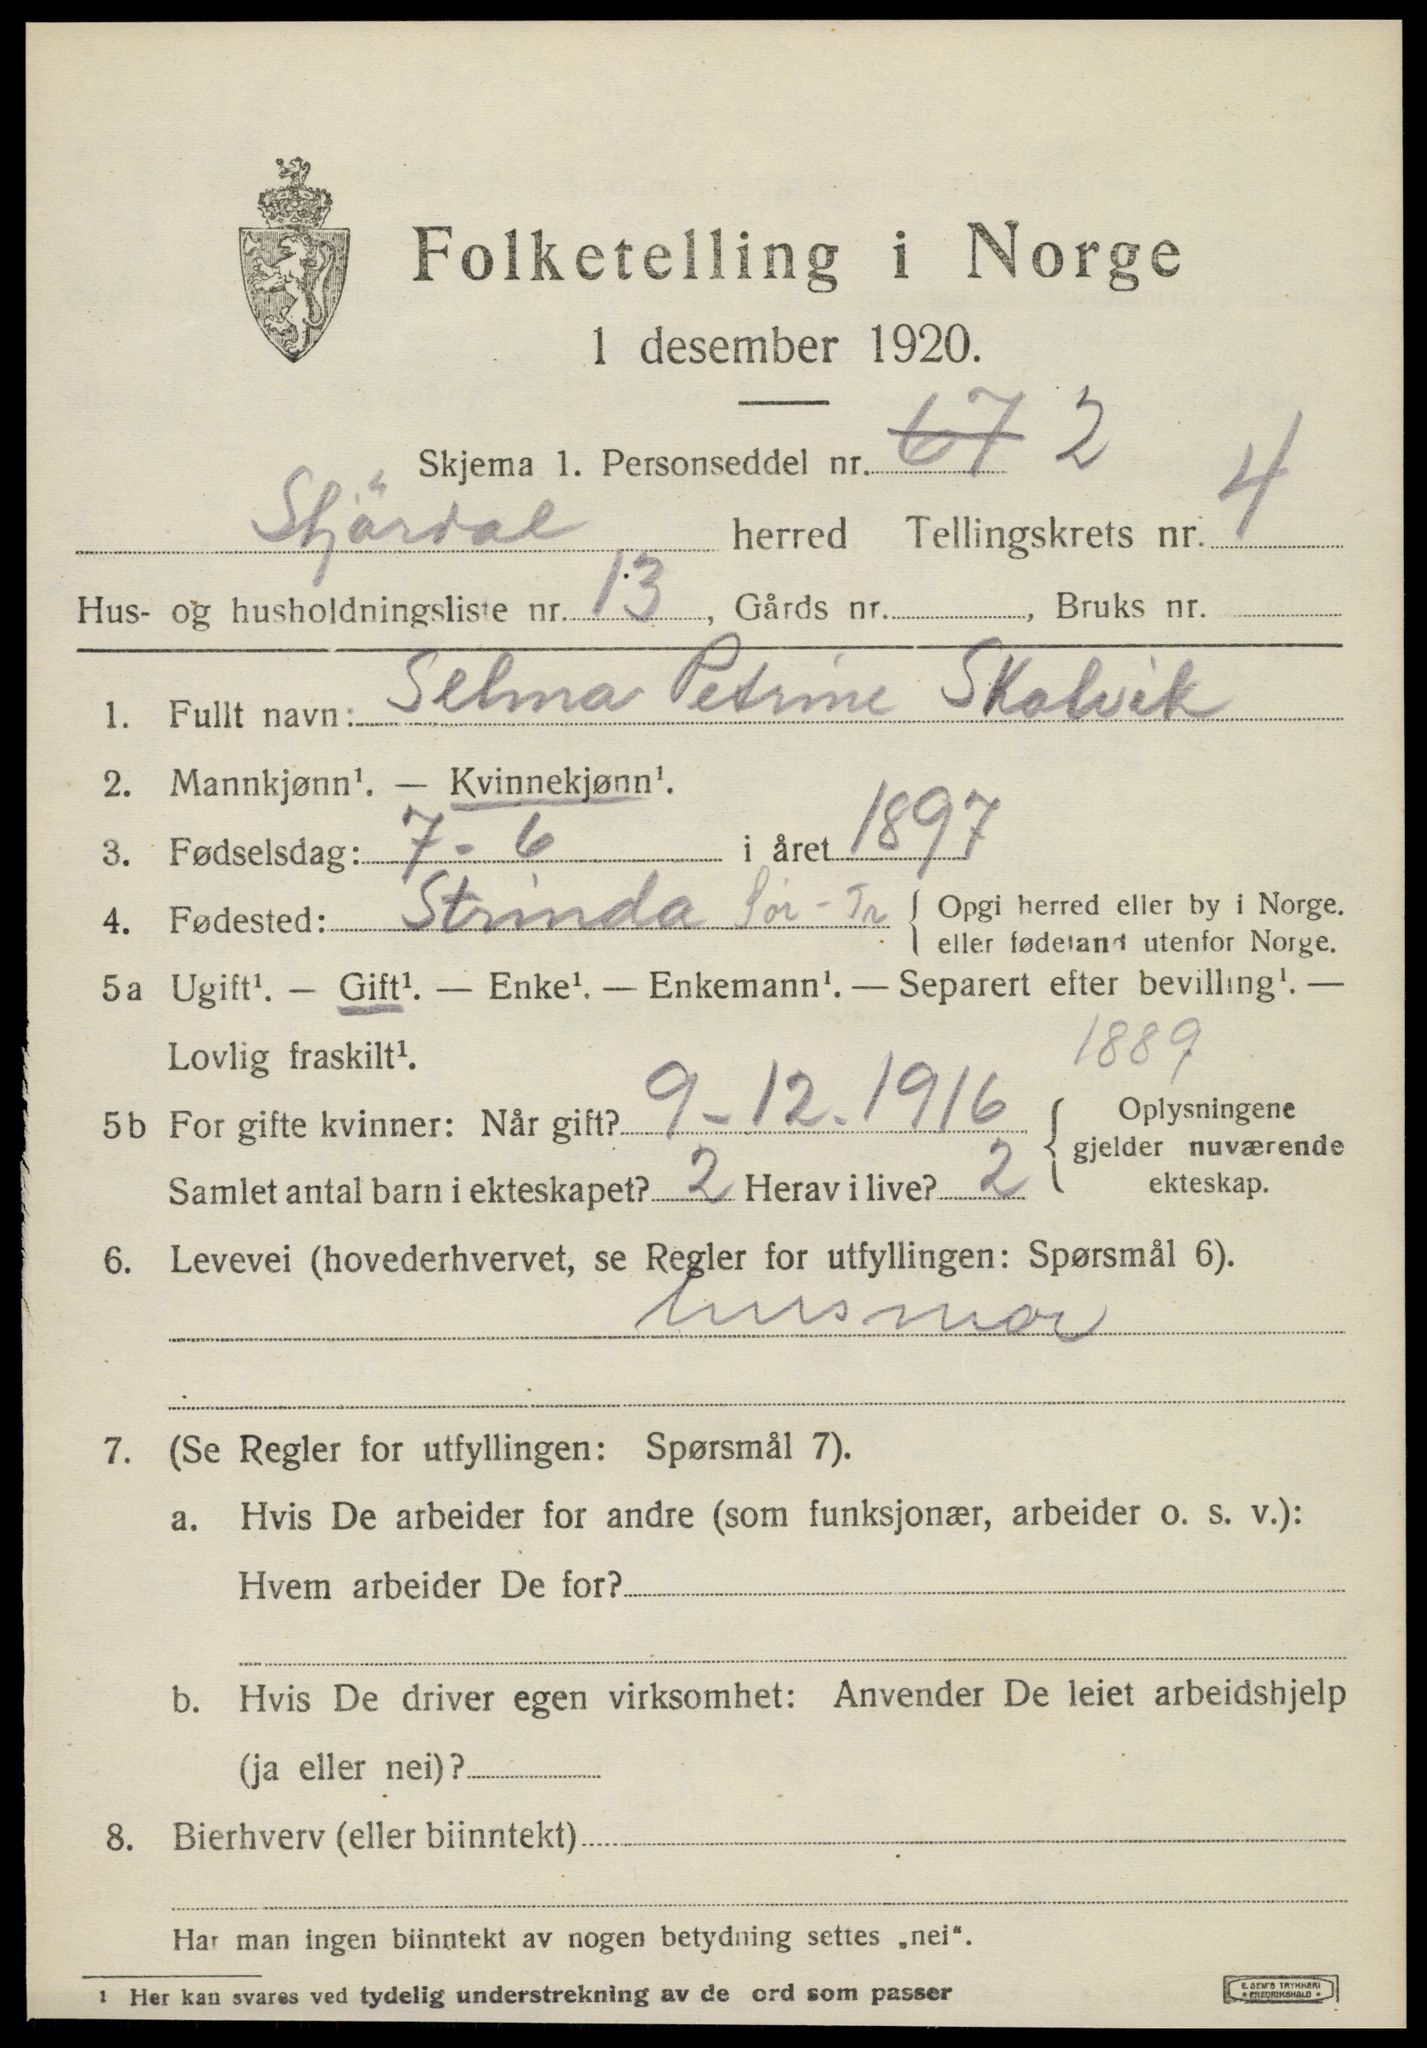 Folketelling i Norge
1 desember 1920.
Skjema 1. Personseddel nr. 67 2
Stjørdal herred Tellingskrets nr. 4
Hus- og husholdningsliste nr. 13, Gårds nr. , Bruks nr.
1. Fullt navn: Selma Petrine Skalvik
2. Mannkjønn¹. — Kvinnekjønn¹.
3. Fødselsdag: 7 - 6 i året 1897
4. Fødested: Strinda Sør-Tr { Opgi herred eller by i Norge.
eller fødeland utenfor Norge.
5a Ugift¹. — Gift¹. — Enke¹. — Enkemann¹. — Separert efter bevilling¹. —
Lovlig fraskilt¹. 1889
5b For gifte kvinner: Når gift? 9-12-1916 { Oplysningene
gjelder nuværende
Samlet antal barn i ekteskapet? 2 Herav i live? 2 ekteskap.
6. Levevei (hovederhvervet, se Regler for utfyllingen: Spørsmål 6).
husmor
7. (Se Regler for utfyllingen: Spørsmål 7).
a. Hvis De arbeider for andre (som funksjonær, arbeider o. s. v.):
Hvem arbeider De for?
b. Hvis De driver egen virksomhet: Anvender De leiet arbeidshjelp
(ja eller nei)?
8. Bierhverv (eller biinntekt)
Har man ingen biinntekt av nogen betydning settes „nei“.
¹ Her kan svares ved tydelig understrekning av de ord som passer
E. SEM'S TRYKKERI
FREDRIKSHALD